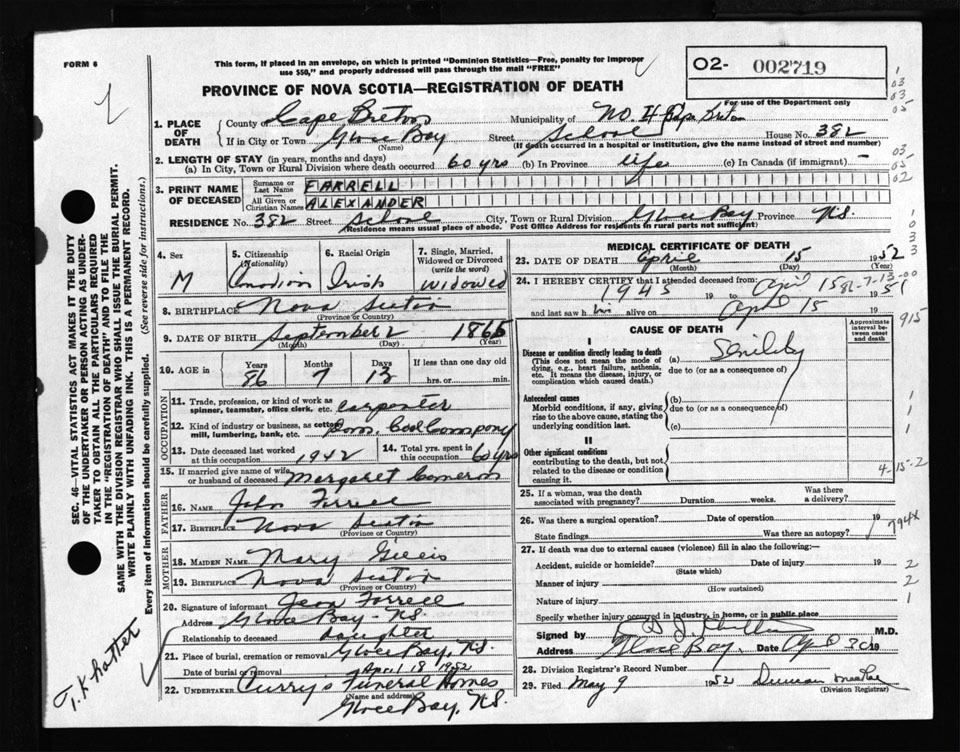 FORM 6
This form, if placed in an envelope, on which is printed "Dominion Statistics—Free, penalty for improper
use $50," and properly addressed will pass through the mail "FREE"
O2- 002719
For use of the Department only
PROVINCE OF NOVA SCOTIA—REGISTRATION OF DEATH
1. PLACE OF DEATH
County of Cape Breton Municipality of NO. 4 Cape Breton
If in City or Town Glace Bay Street School House No. 382
(Name) (If death occurred in a hospital or institution, give the name instead of street and number)
2. LENGTH OF STAY (in years, months and days)
(a) In City, Town or Rural Division where death occurred 60 yrs (b) In Province life (c) In Canada (if immigrant) —
3. PRINT NAME OF DECEASED
Surname or Last Name FARRELL
All Given or Christian Names ALEXANDER
RESIDENCE No. 382 Street School City, Town or Rural Division Glace Bay Province N.S.
(Residence means usual place of abode. Post Office Address for residents in rural parts not sufficient)
4. Sex M
5. Citizenship (Nationality) Canadian
6. Racial Origin Irish
7. Single, Married, Widowed or Divorced (write the word) Widowed
8. BIRTHPLACE Nova Scotia
(Province or Country)
9. DATE OF BIRTH September 2 1865
(Month) (Day) (Year)
10. AGE in Years 86 Months 7 Days 13 If less than one day old hrs. or min.
OCCUPATION
11. Trade, profession, or kind of work as spinner, teamster, office clerk, etc. Carpenter
12. Kind of industry or business, as cotton mill, lumbering, bank, etc. Dom. Coal Company
13. Date deceased last worked at this occupation 1942
14. Total yrs. spent in this occupation 60 yrs
15. If married give name of wife or husband of deceased Margaret Cameron
FATHER
16. NAME John Farrell
17. BIRTHPLACE Nova Scotia
(Province or Country)
MOTHER
18. MAIDEN NAME Mary Gillis
19. BIRTHPLACE Nova Scotia
(Province or Country)
20. Signature of informant Jean Farrell
Address Glace Bay - N.S.
Relationship to deceased daughter
21. Place of burial, cremation or removal Glace Bay, N.S.
Date of burial or removal April 18 1952
22. UNDERTAKER Curry's Funeral Homes
(Name and address)
Glace Bay, N.S.
MEDICAL CERTIFICATE OF DEATH
23. DATE OF DEATH April 15 1952
(Month) (Day) (Year)
24. I HEREBY CERTIFY that I attended deceased from:
1945 19 to April 15 19
and last saw h is alive on April 15 1951
86-7-13-00
CAUSE OF DEATH
Approximate interval between onset and death
I
Disease or condition directly leading to death (a) Senility
(This does not mean the mode of dying, e.g., heart failure, asthenia, etc. It means the disease, injury, or complication which caused death.)
due to (or as a consequence of)
Antecedent causes (b)
Morbid conditions, if any, giving rise to the above cause, stating the underlying condition last.
due to (or as a consequence of)
(c)
II
Other significant conditions
contributing to the death, but not related to the disease or condition causing it.
25. If a woman, was the death associated with pregnancy? Duration weeks. Was there a delivery?
26. Was there a surgical operation? Date of operation 19
State findings Was there an autopsy?
27. If death was due to external causes (violence) fill in also the following:—
Accident, suicide or homicide? Date of injury 19
(State which)
Manner of injury
(How sustained)
Nature of injury
Specify whether injury occurred in industry, in home, or in public place
Signed by M.D.
Address Glace Bay. Date
28. Division Registrar's Record Number
29. Filed May 9 1952 Duncan
(Division Registrar)
SEC. 46—VITAL STATISTICS ACT MAKES IT THE DUTY
OF THE UNDERTAKER OR PERSON ACTING AS UNDER-
TAKER TO OBTAIN ALL THE PARTICULARS REQUIRED
IN THE "REGISTRATION OF DEATH" AND TO FILE THE
SAME WITH THE DIVISION REGISTRAR WHO SHALL ISSUE THE BURIAL PERMIT.
WRITE PLAINLY WITH UNFADING INK. THIS IS A PERMANENT RECORD.
Every item of information should be carefully supplied. (See reverse side for instructions.)
1
03
03
05
03
05
02
1
0
3
3
915
1
1
1
4-15-2
794X
2
2
1